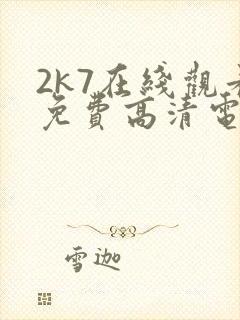 2k7在綫觀
免費高清電
雪迦